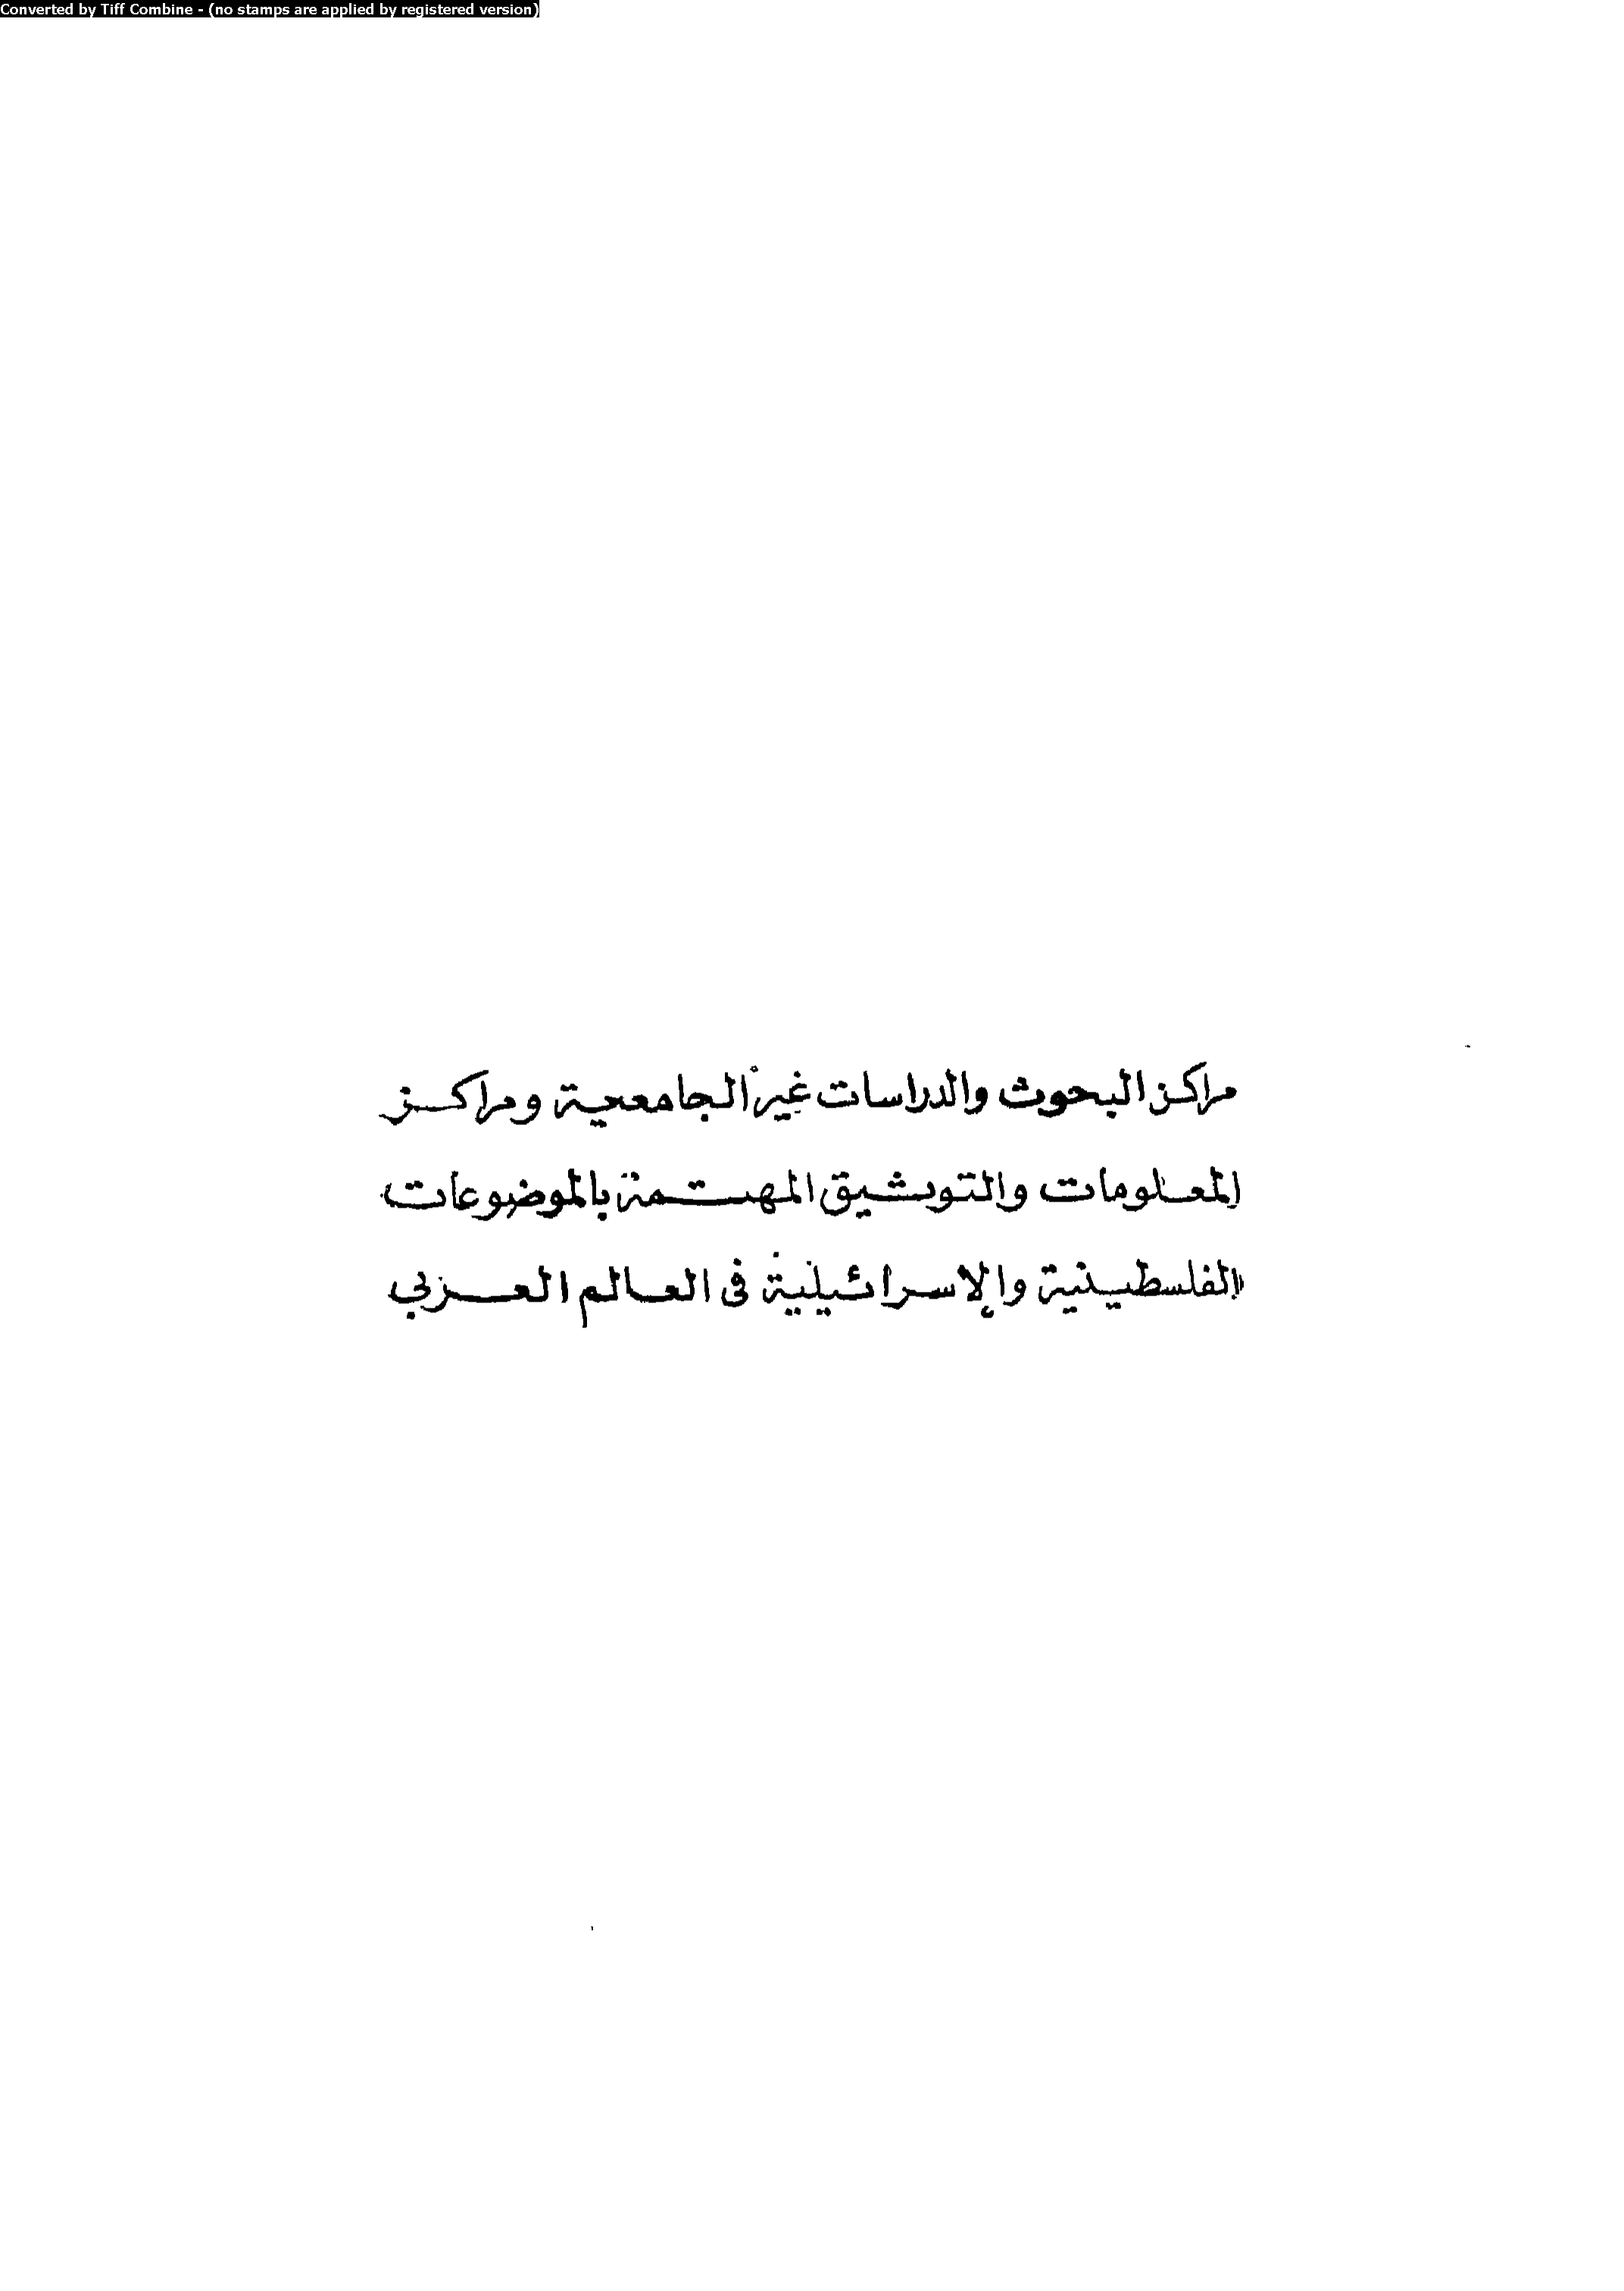 Converted by Tiff Combine - (no stamps are applied by registered version)
مراكز البحوث والدراسات غير الجامعية ومراكز
المعلومات والتوثيق المهتمة بالموضوعات
الفلسطينية والإسرائيلية فى العالم العربي